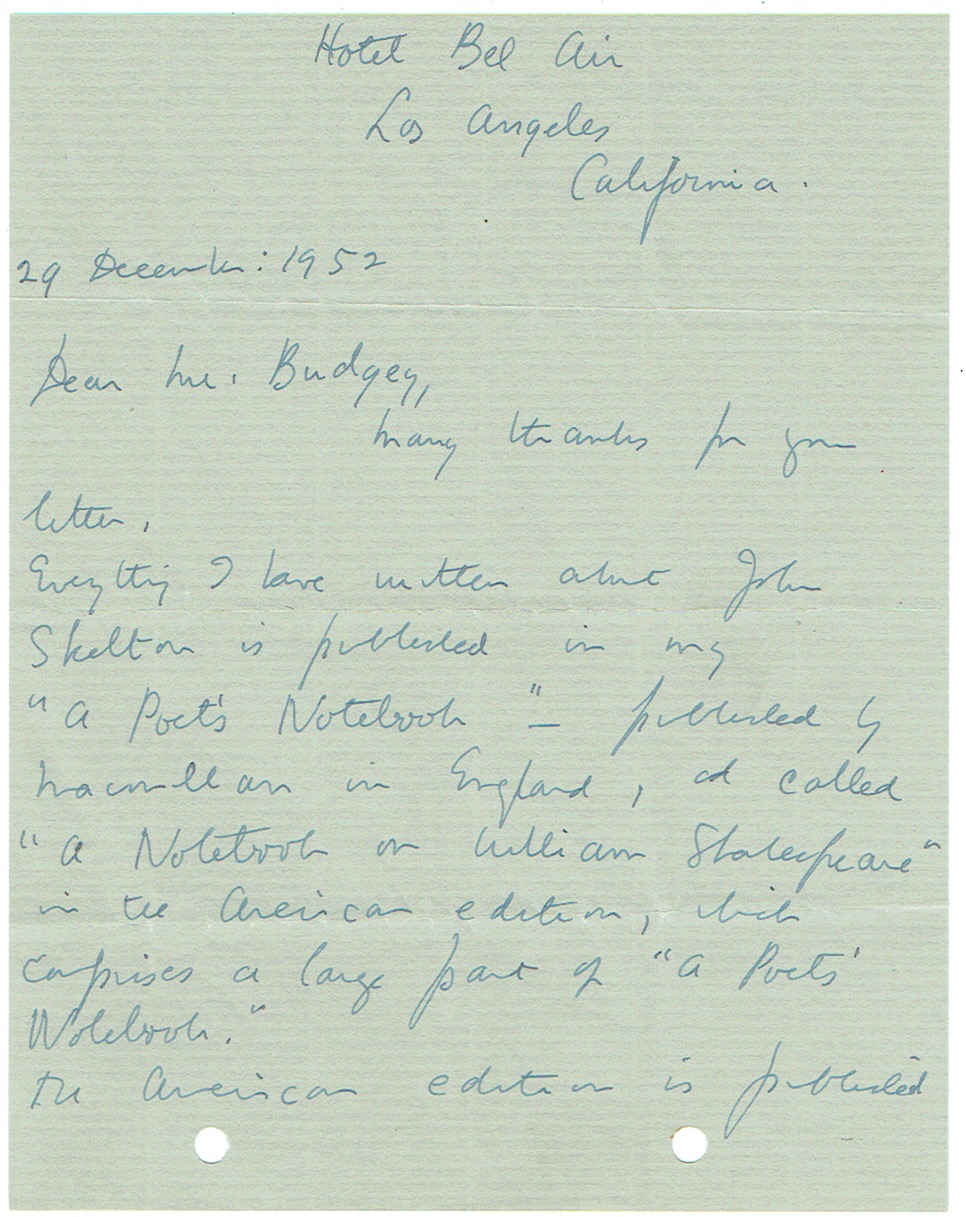 Hotel Bel Air
Los Angeles
California.
29 December: 1952
Dear Mr. Budgey,
Many thanks for your
letter.
Everything I have written about John
Skelton is published in my
"A Poet's Notebook" — published by
Macmillan in England, and called
"A Notebook on William Shakespeare"
in the American edition, which
comprises a large part of "A Poets'
Notebook."
The American edition is published